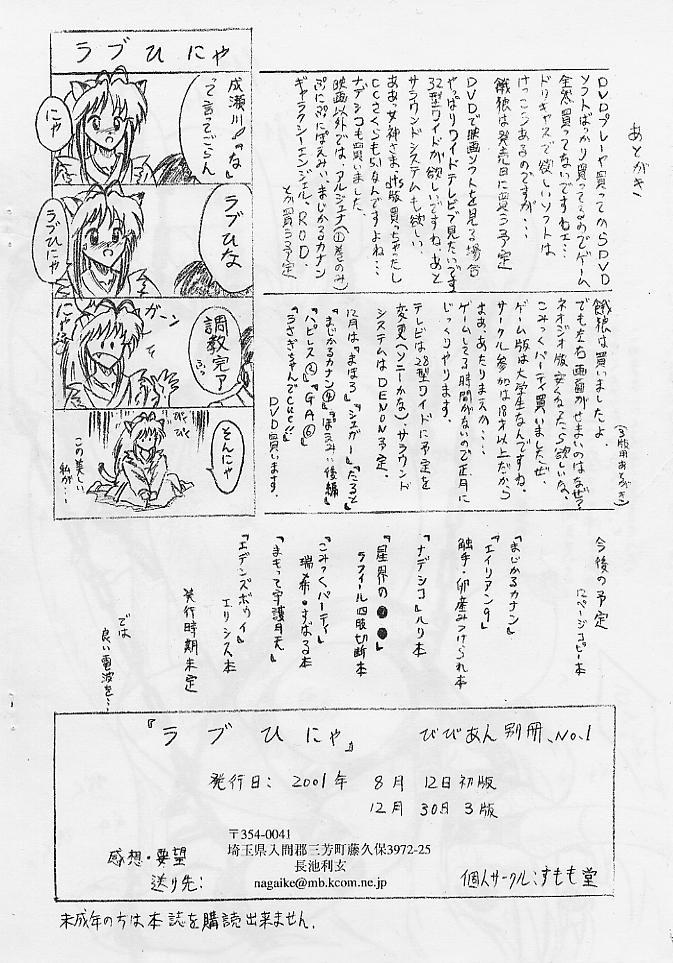 ラブひにゃ
成瀬川!「な」
って言ってごらん
にゃ
ラブひな
ラブひにゃ
ガーン
調教完了
ふっ
にゃ
びく
びく
そんにゃ
この美しい
私が・・・
あとがき
DVDプレーヤ買ってからSDVD
ソフトばっかり買ってるのでゲーム
全然買ってないですねェ・・・
ドリキャスで欲しいソフトは
けっこうあるのですが・・・
餓狼は発売日に買う予定
DVDで映画ソフトを見る場合
やっぱりワイドテレビで見たいです
32型ワイドが欲しいですね。あと
サラウンドシステムも欲しい。
ああっ女神さまっdts版買っちゃったし
CCさくらも5.1なんですよね・・・
ナデシコも買いました。
映画以外では、アルジェナ(①巻のみ)
ぷにぷにぽえみぃ、まじかるカナン
ギャラクシーエンジェル、R.O.D.
とか買う予定
(3版用あとがき)
餓狼は買いましたよ。
でも左右画面がせまいのはなぜ?
ネオジオ版安くなったら欲しいな。
こみっくパーティ買いましたぜ。
ゲーム版は大学生なんですね。
サークル参加は18才以上だから
まぁ、あたりまえか・・・
ゲームしてる時間がないので正月に
じっくりやります。
テレビは28型ワイドに予定を
変更(ソニーかな)、サラウンド
システムはDENON予定。
12月は『まほろ』『シュガー』『だぁと』
『まじかるカナン④』『ぽえみぃ後編』
『ハピレス②』『GA⑥』
『うさぎちゃんでCue!!』
DVD買います。
今後の予定
12ページコピー本
『まじかるカナン』
『エイリアン9』
触手・卵産みつけられ本
『ナデシコ』ルリ本
『星界の●●』
ラフィール四肢切断本
『こみっくパーティ』
瑞希・すばる本
『まもって守護月天』
『エデンズボゥイ』
エリシス本
発行時期未定
では
良い電波を・・・
『ラブひにゃ』 びびあん別冊、No.1
発行日: 2001年 8月 12日初版
12月 30日 3版
感想・要望
送り先:
〒354-0041
埼玉県入間郡三芳町藤久保3972-25
長池利玄
nagaike@mb.kcom.ne.jp
個人サークル:すもも堂
未成年の方は本誌を購読出来ません.